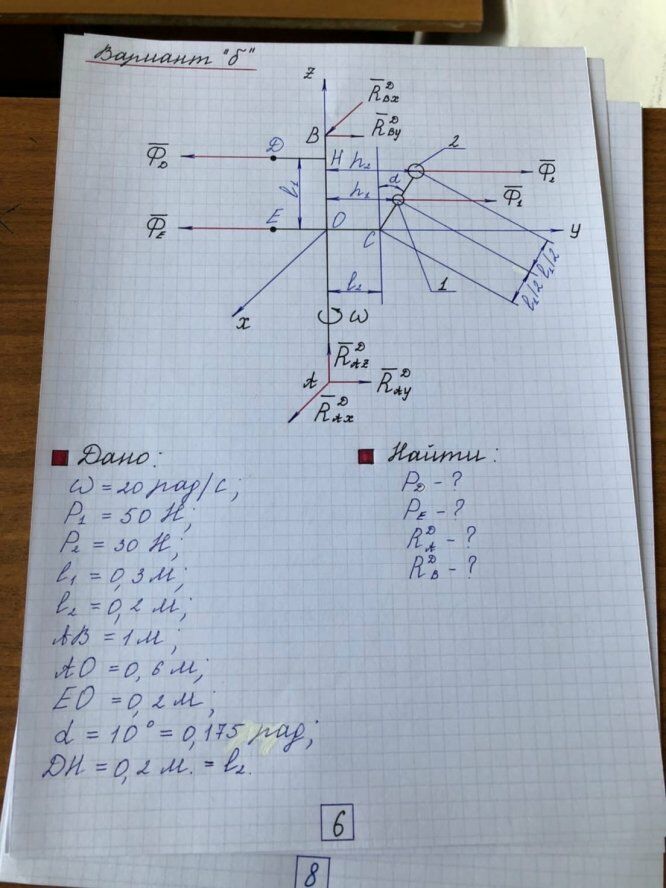 Вариант "б"
z
R̅ᴰBx
B
R̅ᴰBy
2
Φ̅D
D
H
h₂
α
Φ̅₂
l₁
h₁
Φ̅₁
Φ̅E
E
O
C
y
l₂
1
l₁/2 l₁/2
x
ω
R̅ᴰAz
A
R̅ᴰAy
R̅ᴰAx
Дано:
ω = 20 рад/с;
P₁ = 50 Н;
P₂ = 30 Н;
l₁ = 0,3 м;
l₂ = 0,2 м;
AB = 1 м;
AO = 0,6 м;
EO = 0,2 м;
α = 10° = 0,175 рад;
DH = 0,2 м. = l₂.
Найти:
PD - ?
PE - ?
RᴰA - ?
RᴰB - ?
6
8